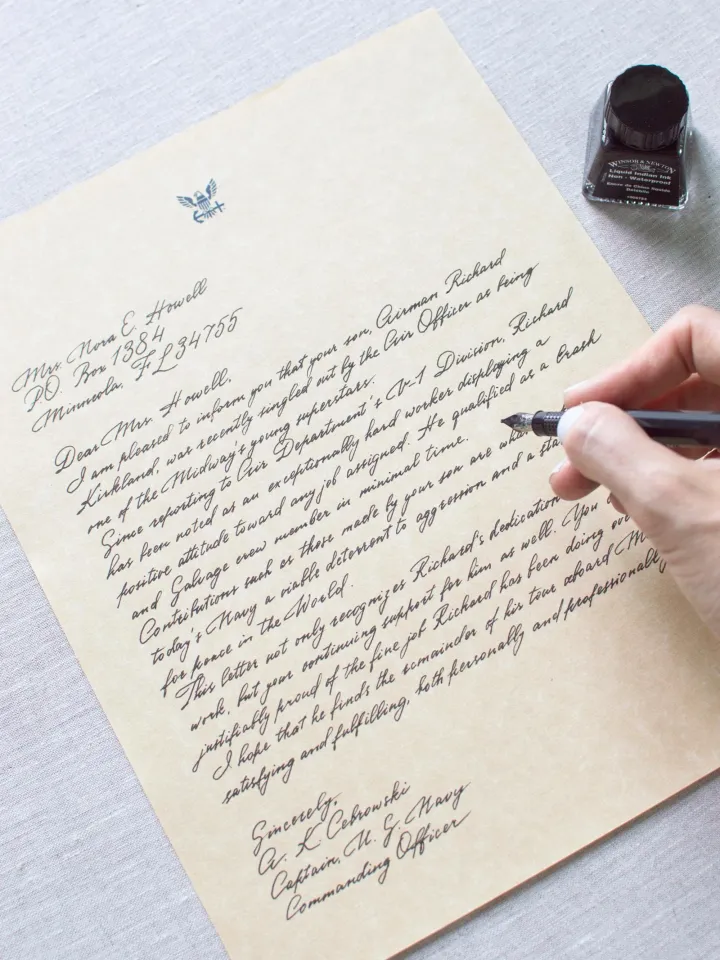 Mrs. Nora E. Howell
P.O. Box 1384
Minneola, FL 34755
Dear Mrs. Howell,
I am pleased to inform you that your son, Airman Richard
Kirkland, was recently singled out by the Air Officer as being
one of the Midway's young superstars.
Since reporting to Air Department's V-1 Division, Richard
has been noted as an exceptionally hard worker displaying a
positive attitude toward any job assigned. He qualified as a Crash
and Salvage crew member in minimal time.
Contributions such as those made by your son are
today's Navy a viable deterrent to aggression and a
for peace in the World.
This letter not only recognizes Richard's dedication
work, but your continuing support for him as well. You
justifiably proud of the fine job Richard has been doing
I hope that he finds the remainder of his tour aboard
satisfying and fulfilling, both personally and professionally
Sincerely,
A. K. Cebrowski
Captain, U. S. Navy
Commanding Officer
WINSOR & NEWTON
Liquid Indian Ink
Non - Waterproof
Encre de Chine liquide